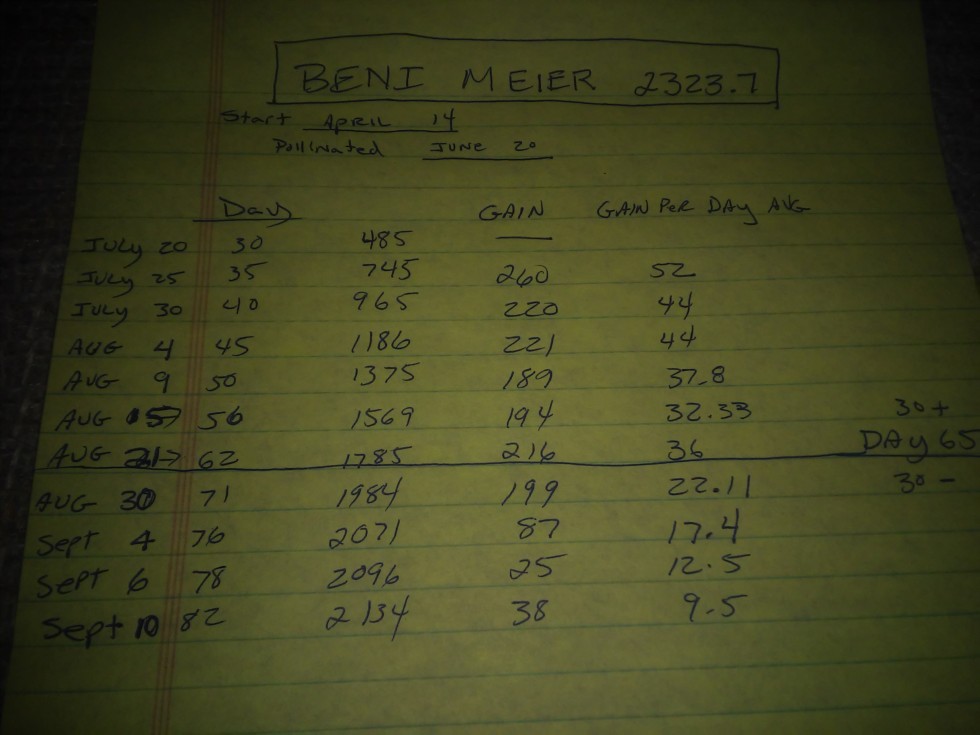 BENI MEIER 2323.7
Start APRIL 14
Pollinated JUNE 20
Day GAIN GAIN PER DAY AVG
JULY 20 30 485 —
JULY 25 35 745 260 52
JULY 30 40 965 220 44
AUG 4 45 1186 221 44
AUG 9 50 1375 189 37.8
AUG 15→ 56 1569 194 32.33 30+
AUG 21→ 62 1785 216 36 DAY 65
AUG 30 71 1984 199 22.11 30-
Sept 4 76 2071 87 17.4
Sept 6 78 2096 25 12.5
Sept 10 82 2134 38 9.5